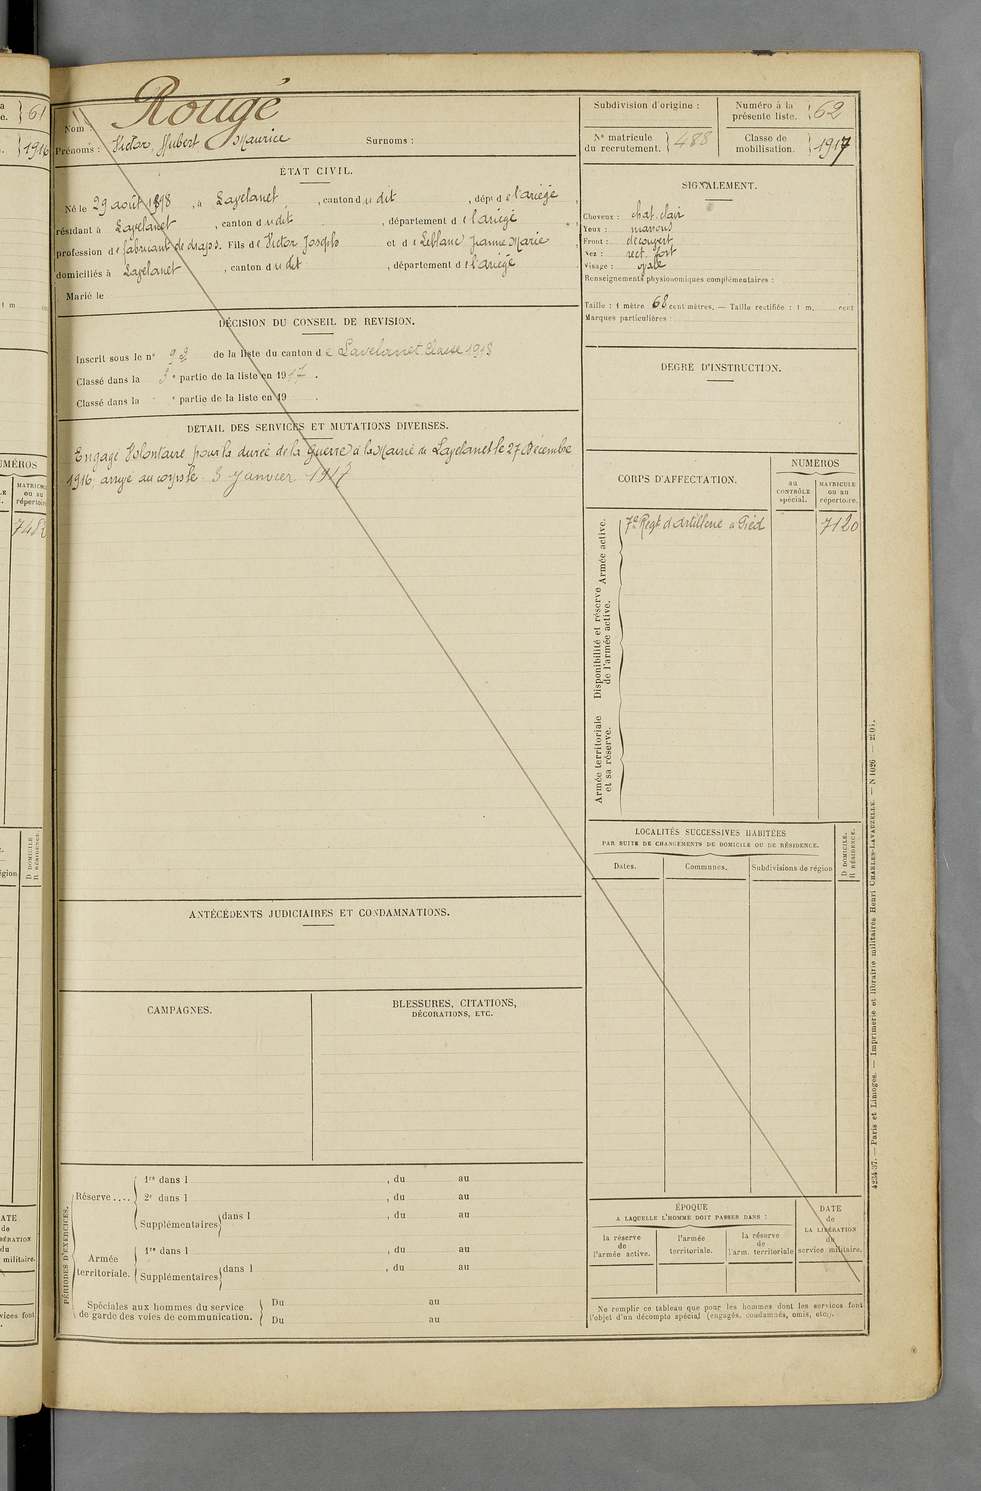 Nom : Rougé
Prénoms : Victor, Hubert Maurice Surnoms :
Subdivision d'origine :
Numéro à la présente liste. 62
N° matricule du recrutement. 488
Classe de mobilisation. 1917
ÉTAT CIVIL.
Né le 29 août 1898, à Lavelanet, canton dudit, dépt de l'ariège,
résidant à Lavelanet, canton dudit, département de l'ariège,
profession de fabricant de draps. Fils de Victor Joseph et de Leblanc Jeanne Marie,
domiciliés à Lavelanet, canton dudit, département de l'ariège
Marié le
DÉCISION DU CONSEIL DE REVISION.
Inscrit sous le n° 92 de la liste du canton de Lavelanet Classe 1918
Classé dans la 5e partie de la liste en 1917.
Classé dans la e partie de la liste en 19 .
DÉTAIL DES SERVICES ET MUTATIONS DIVERSES.
Engagé Volontaire pour la durée de la guerre à la Mairie de Lavelanet le 27 Décembre
1916 arrivé au corps le 3 Janvier 1917
ANTÉCÉDENTS JUDICIAIRES ET CONDAMNATIONS.
CAMPAGNES.
BLESSURES, CITATIONS,
DÉCORATIONS, ETC.
PÉRIODES D'EXERCICES.
Réserve .... 1re dans l , du au
2e dans l , du au
Supplémentaires dans l , du au
Armée territoriale. 1re dans l , du au
Supplémentaires dans l , du au
Spéciales aux hommes du service Du au
de garde des voies de communication. Du au
SIGNALEMENT.
Cheveux : chat. clair
Yeux : marrons
Front : découvert
Nez : rect. fort
Visage : ovale
Renseignements physionomiques complémentaires :
Taille : 1 mètre 68 centimètres. — Taille rectifiée : 1 m. cent
Marques particulières :
DEGRÉ D'INSTRUCTION.
CORPS D'AFFECTATION.
NUMÉROS
au CONTRÔLE spécial.
MATRICULE ou au répertoire.
Armée active.
7e Regt d'artillerie à Pied 7120
Disponibilité et réserve de l'armée active.
Armée territoriale et sa réserve.
LOCALITÉS SUCCESSIVES HABITÉES
PAR SUITE DE CHANGEMENTS DE DOMICILE OU DE RÉSIDENCE.
Dates.
Communes.
Subdivisions de région
D DOMICILE.
R RÉSIDENCE.
ÉPOQUE
A LAQUELLE L'HOMME DOIT PASSER DANS :
la réserve de l'armée active.
l'armée territoriale.
la réserve de l'arm. territoriale
DATE de LA LIBÉRATION du service militaire.
Ne remplir ce tableau que pour les hommes dont les services font
l'objet d'un décompte spécial (engagés, condamnés, omis, etc.).
Paris et Limoges. — Imprimerie et librairie militaires Henri CHARLES-LAVAUZELLE.
61
1916
UMÉROS
D DOMICILE
R RÉSIDENCE.